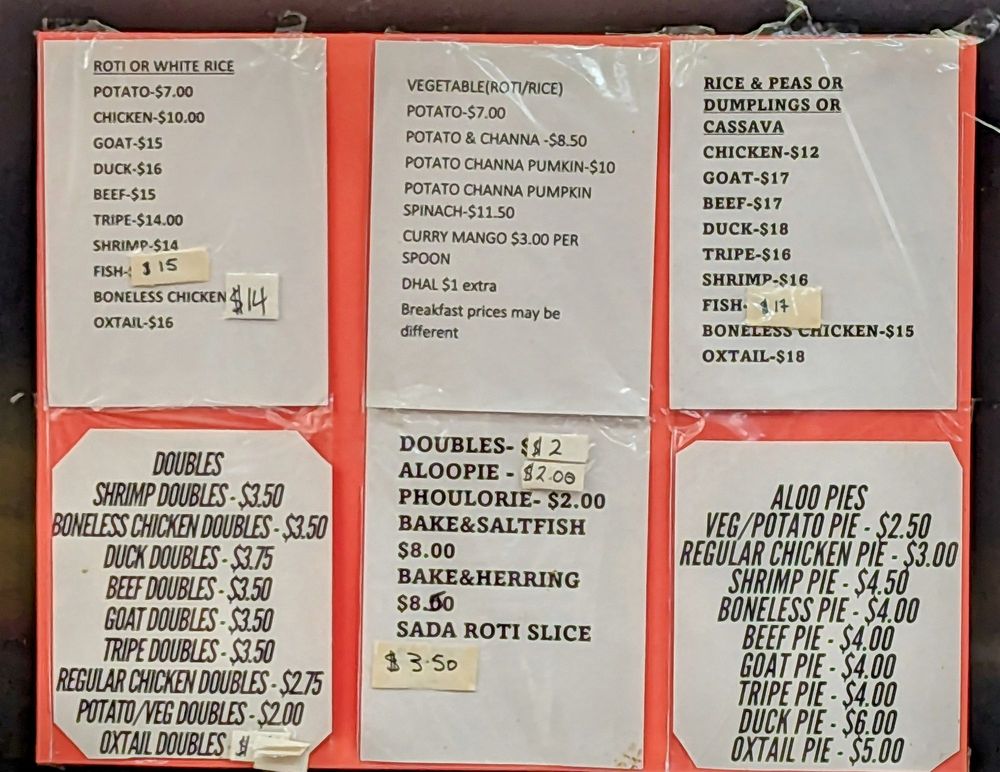 ROTI OR WHITE RICE
POTATO-$7.00
CHICKEN-$10.00
GOAT-$15
DUCK-$16
BEEF-$15
TRIPE-$14.00
SHRIMP-$14
FISH-$15
BONELESS CHICKEN $14
OXTAIL-$16
VEGETABLE(ROTI/RICE)
POTATO-$7.00
POTATO & CHANNA -$8.50
POTATO CHANNA PUMKIN-$10
POTATO CHANNA PUMPKIN
SPINACH-$11.50
CURRY MANGO $3.00 PER
SPOON
DHAL $1 extra
Breakfast prices may be
different
RICE & PEAS OR
DUMPLINGS OR
CASSAVA
CHICKEN-$12
GOAT-$17
BEEF-$17
DUCK-$18
TRIPE-$16
SHRIMP-$16
FISH- $17
BONELESS CHICKEN-$15
OXTAIL-$18
DOUBLES
SHRIMP DOUBLES - $3.50
BONELESS CHICKEN DOUBLES - $3.50
DUCK DOUBLES - $3.75
BEEF DOUBLES - $3.50
GOAT DOUBLES - $3.50
TRIPE DOUBLES - $3.50
REGULAR CHICKEN DOUBLES - $2.75
POTATO/VEG DOUBLES - $2.00
OXTAIL DOUBLES $
DOUBLES- $$2
ALOOPIE - $2.00
PHOULORIE- $2.00
BAKE&SALTFISH
$8.00
BAKE&HERRING
$8.00
SADA ROTI SLICE
$3.50
ALOO PIES
VEG/POTATO PIE - $2.50
REGULAR CHICKEN PIE - $3.00
SHRIMP PIE - $4.50
BONELESS PIE - $4.00
BEEF PIE - $4.00
GOAT PIE - $4.00
TRIPE PIE - $4.00
DUCK PIE - $6.00
OXTAIL PIE - $5.00